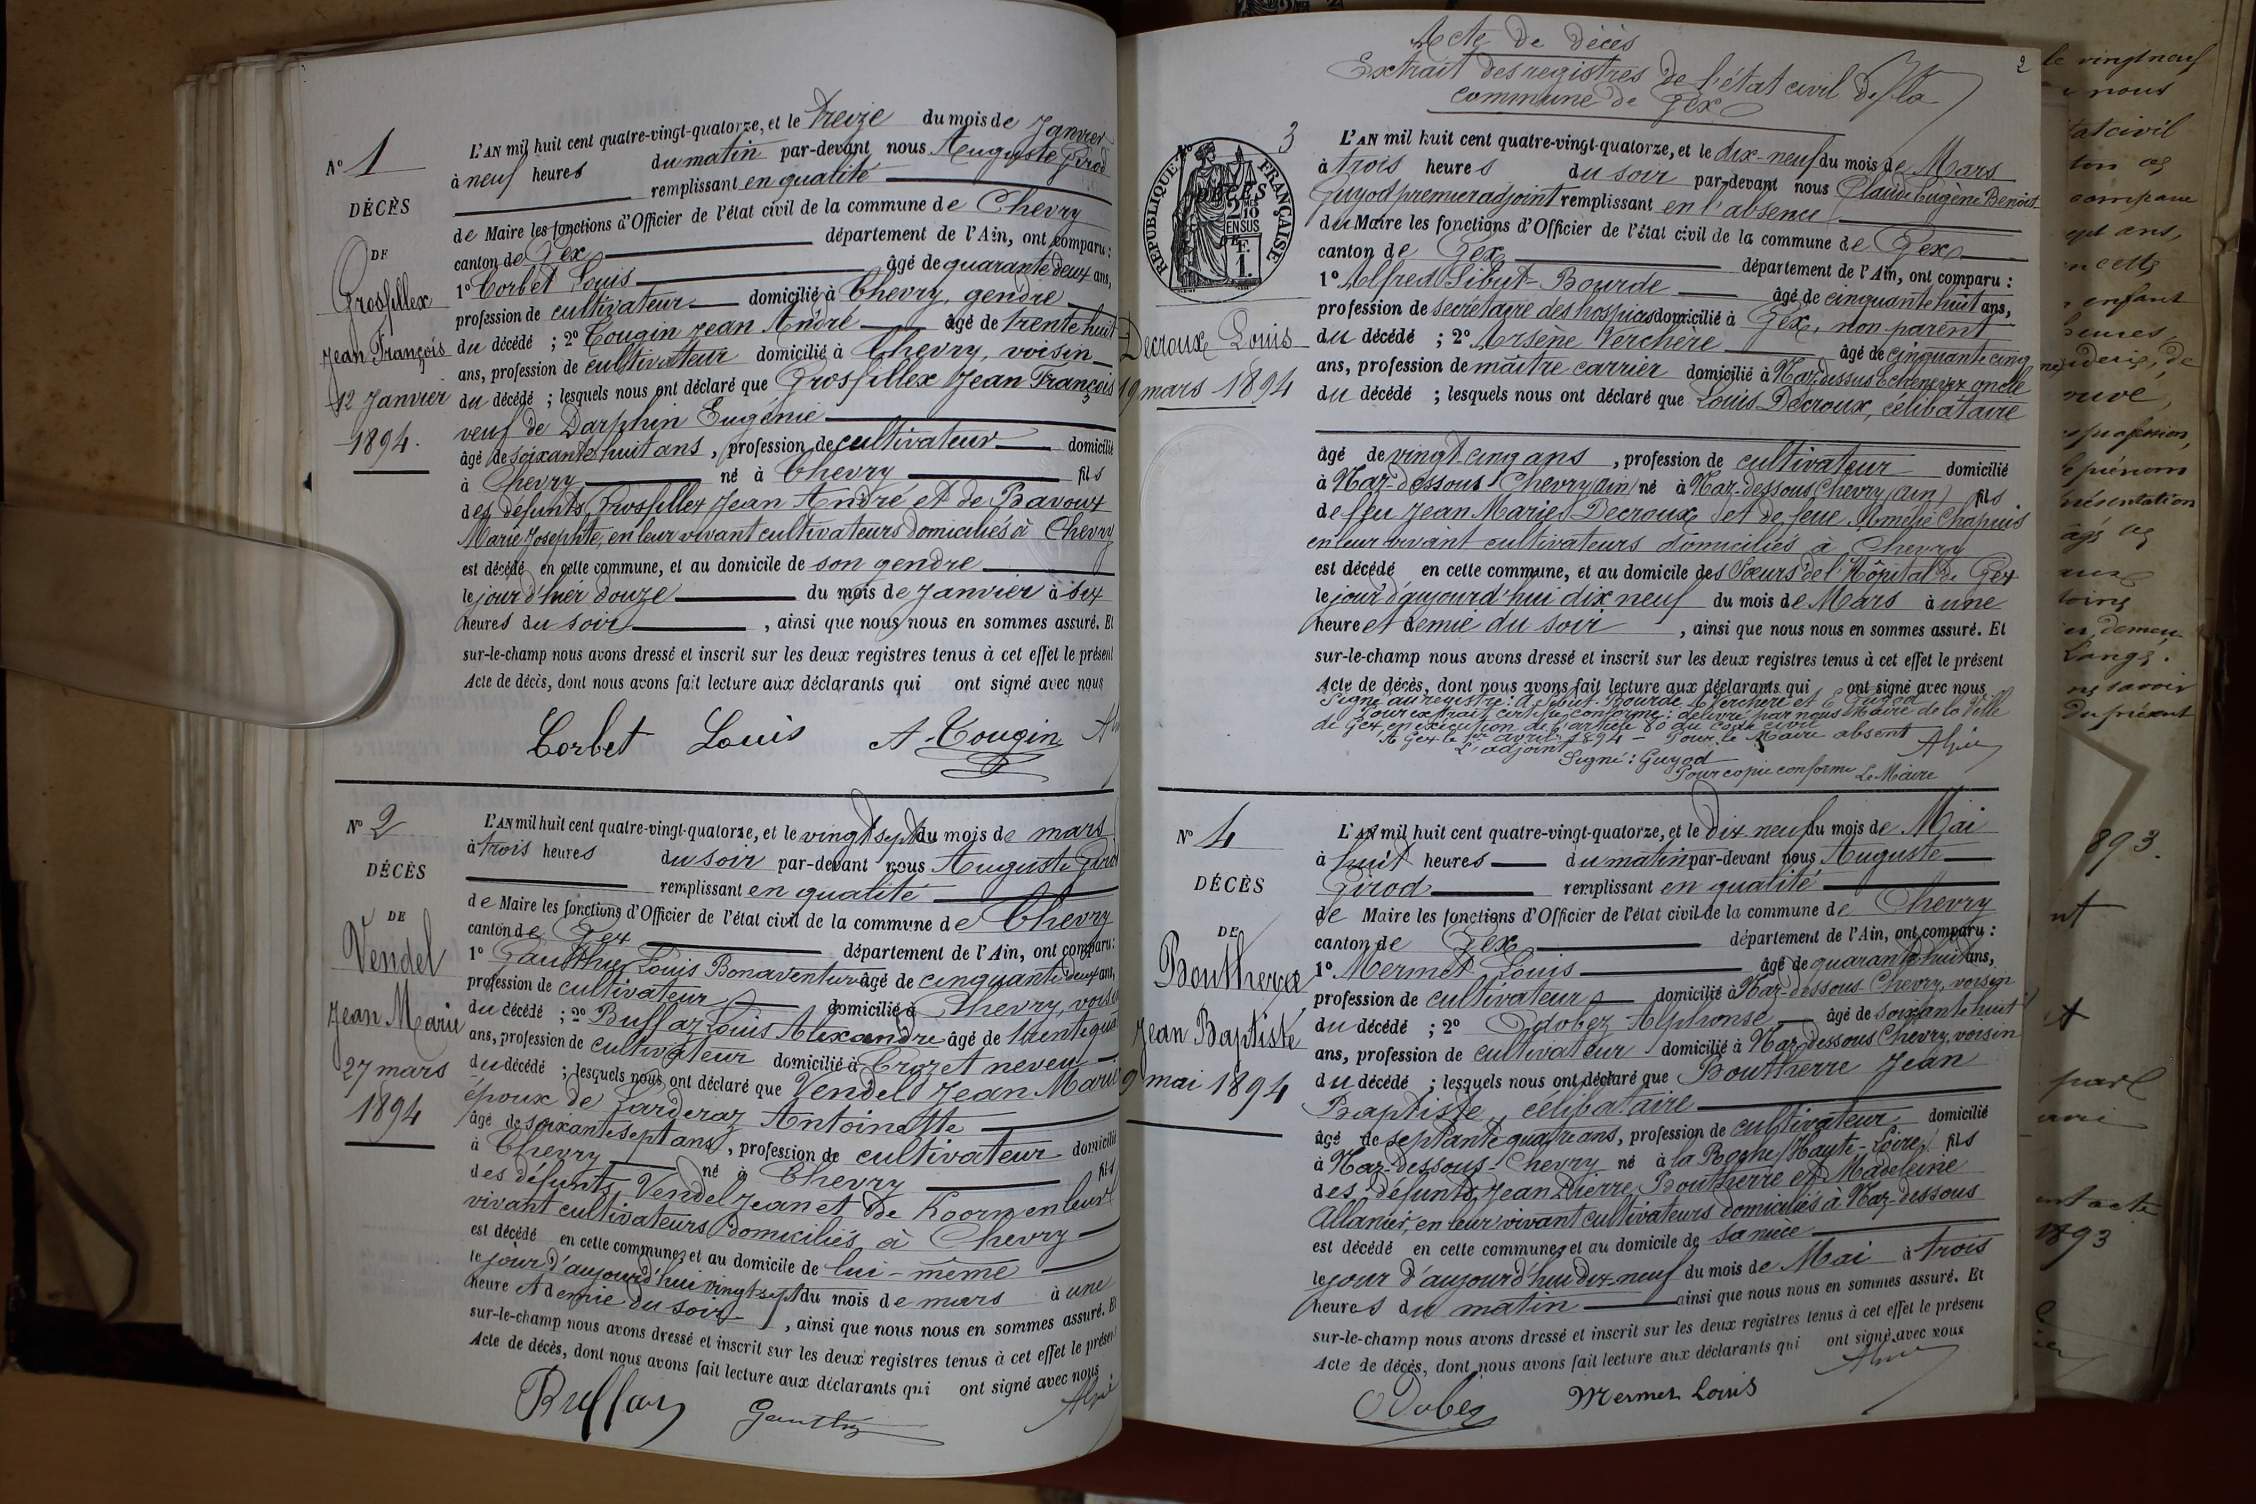 N° 1
DÉCÈS
DE
Grosfillex
Jean François
12 Janvier
1894.
L'AN mil huit cent quatre-vingt-quatorze, et le treize du mois de Janvier
à neuf heures du matin par-devant nous Auguste Girod
remplissant en qualité
de Maire les fonctions d'Officier de l'état civil de la commune de Chevry
canton de Gex département de l'Ain, ont comparu :
1° Corbet Louis âgé de quarante deux ans,
profession de cultivateur domicilié à Chevry, gendre
du décédé ; 2° Cougin Jean André âgé de trente huit
ans, profession de cultivateur domicilié à Chevry, voisin
du décédé ; lesquels nous ont déclaré que Grosfillex Jean François
veuf de Darphin Eugénie
âgé de soixante huit ans, profession de cultivateur domicilié
à Chevry né à Chevry fils
des défunts Grosfillex Jean André et de Bavoux
Marie Josephte, en leur vivant cultivateurs domiciliés à Chevry
est décédé en cette commune, et au domicile de son gendre
le jour d'hier douze du mois de Janvier à six
heures du soir, ainsi que nous nous en sommes assuré. Et
sur-le-champ nous avons dressé et inscrit sur les deux registres tenus à cet effet le présent
Acte de décès, dont nous avons fait lecture aux déclarants qui ont signé avec nous
Corbet Louis A. Cougin
N° 2
DÉCÈS
DE
Vendel
Jean Marie
27 mars
1894
L'AN mil huit cent quatre-vingt-quatorze, et le vingt sept du mois de mars
à trois heures du soir par-devant nous Auguste Girod
remplissant en qualité
de Maire les fonctions d'Officier de l'état civil de la commune de Chevry
canton de Gex département de l'Ain, ont comparu :
1° Gauthier Louis Bonaventure âgé de cinquante deux ans,
profession de cultivateur domicilié à Chevry, voisin
du décédé ; 2° Buffaz Louis Alexandre âgé de trente quatre
ans, profession de cultivateur domicilié à Crozet neveu
du décédé ; lesquels nous ont déclaré que Vendel Jean Marie
époux de Larderaz Antoinette
âgé de soixante sept ans, profession de cultivateur domicilié
à Chevry né à Chevry fils
des défunts Vendel Jean et de Koorn en leur
vivant cultivateurs domiciliés à Chevry
est décédé en cette commune, et au domicile de lui-même
le jour d'aujourd'hui vingt sept du mois de mars à une
heure et demie du soir, ainsi que nous nous en sommes assuré. Et
sur-le-champ nous avons dressé et inscrit sur les deux registres tenus à cet effet le présent
Acte de décès, dont nous avons fait lecture aux déclarants qui ont signé avec nous
Buffaz Gauthier
2
Acte de décès
Extrait des registres de l'état civil de la
commune de Gex
3
RÉPUBLIQUE FRANÇAISE
2/10 EN SUS
1 F.
DÉCÈS
Decroux Louis
19 mars 1894
L'AN mil huit cent quatre-vingt-quatorze, et le dix-neuf du mois de Mars
à trois heures du soir par-devant nous Claude Eugène Benoit
Guyod premier adjoint remplissant en l'absence
du Maire les fonctions d'Officier de l'état civil de la commune de Gex
canton de Gex département de l'Ain, ont comparu :
1° Alfred Sibut-Bourde âgé de cinquante huit ans,
profession de secrétaire des hospices domicilié à Gex, non parent
du décédé ; 2° Arsène Verchère âgé de cinquante cinq
ans, profession de maître carrier domicilié à Naz-dessus Echenevex oncle
du décédé ; lesquels nous ont déclaré que Louis Decroux, célibataire
âgé de vingt-cinq ans, profession de cultivateur domicilié
à Naz-dessous Chevry (Ain) né à Naz-dessous Chevry (Ain) fils
de feu Jean Marie Decroux et de feue Amélie Chapuis
en leur vivant cultivateurs domiciliés à Chevry
est décédé en cette commune, et au domicile des Sœurs de l'Hôpital de Gex
le jour d'aujourd'hui dix neuf du mois de Mars à une
heure et demie du soir, ainsi que nous nous en sommes assuré. Et
sur-le-champ nous avons dressé et inscrit sur les deux registres tenus à cet effet le présent
Acte de décès, dont nous avons fait lecture aux déclarants qui ont signé avec nous
Signé au registre : A. Sibut-Bourde, A. Verchère et E. Guyod
Pour extrait certifié conforme : délivré par nous Maire de la Ville
de Gex, en exécution de l'article 80 du code civil
A Gex le 1er avril 1894 - Pour le Maire absent
L'adjoint
Signé : Guyod
Pour copie conforme Le Maire
N° 4
DÉCÈS
DE
Boutherre
Jean Baptiste
9 mai 1894
L'AN mil huit cent quatre-vingt-quatorze, et le dix neuf du mois de Mai
à huit heures du matin par-devant nous Auguste
Girod remplissant en qualité
de Maire les fonctions d'Officier de l'état civil de la commune de Chevry
canton de Gex département de l'Ain, ont comparu :
1° Mermet Louis âgé de quarante huit ans,
profession de cultivateur domicilié à Naz-dessous Chevry, voisin
du décédé ; 2° Odobez Alphonse âgé de soixante huit
ans, profession de cultivateur domicilié à Naz-dessous Chevry, voisin
du décédé ; lesquels nous ont déclaré que Boutherre Jean
Baptiste, célibataire
âgé de septante quatre ans, profession de cultivateur domicilié
à Naz-dessous-Chevry né à la Roche (Haute-Loire) fils
des défunts Jean Pierre Boutherre et Madeleine
Allanier, en leur vivant cultivateurs domiciliés à Naz-dessous
est décédé en cette commune, et au domicile de sa nièce
le jour d'aujourd'hui dix-neuf du mois de Mai à trois
heures du matin ainsi que nous nous en sommes assuré. Et
sur-le-champ nous avons dressé et inscrit sur les deux registres tenus à cet effet le présent
Acte de décès, dont nous avons fait lecture aux déclarants qui ont signé avec nous
Odobez Mermet Louis
le vingt neuf
nous
état civil
enfant
heures
profession,
prénom
présentation
demeu
savoir
du présent
893.
acte
1893